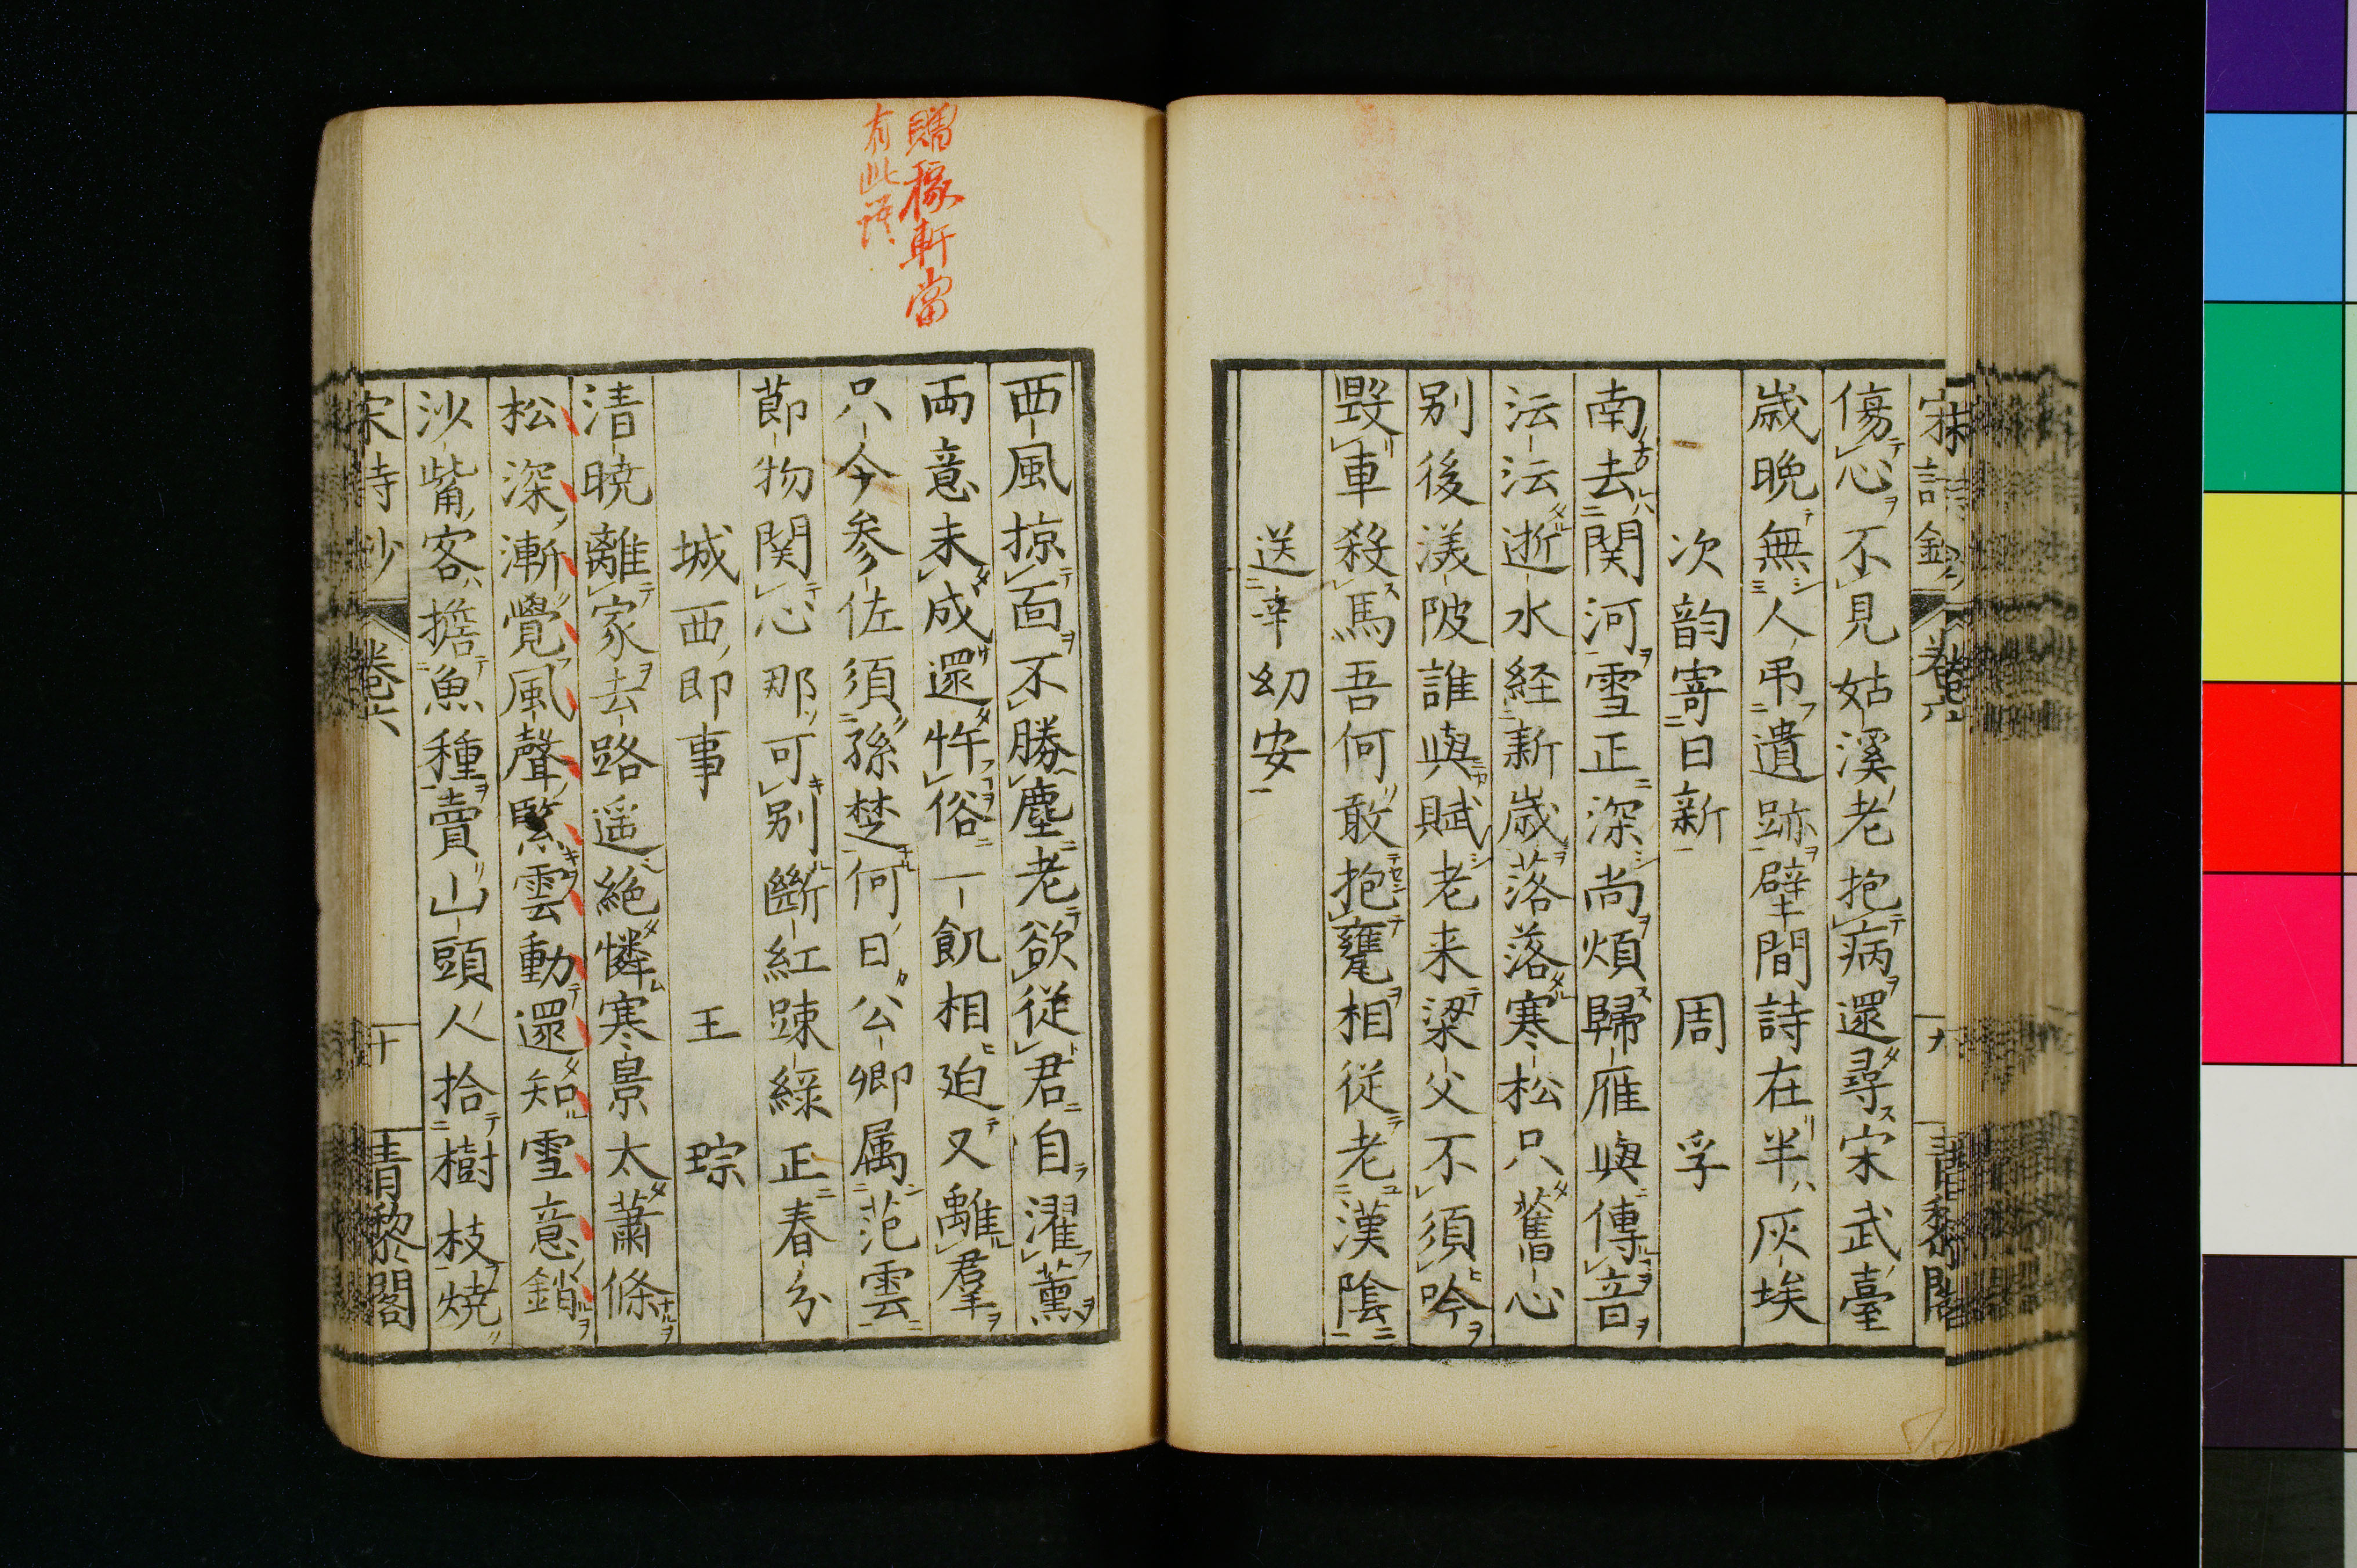 傷心不見姑溪老抱病還尋宋武臺
歳晩無人弔遺跡壁間詩在半灰埃
次韵寄日新　周孚
南去関河雪正深尚煩歸雁與傳音
沄沄逝水経新歳落落寒松只舊心
别後渼陂誰與賦老来梁父不須吟
毀車殺馬吾何敢抱甕相従老漢陰
送辛幼安
西風掠面不勝塵老欲従君自濯薫
両意未成還忤俗一飢相迫又離羣
只今参佐須孫楚何日公卿属范雲
莭物関心那可别斷紅踈緑正春分
城西即事　王琮
清暁離家去路遥絶憐寒景太蕭條
松深漸覺風聲緊雲動還知雪意銷
沙觜客擔魚種賣山頭人拾樹枝燒
宋詩鈔　巻六　十　青黎閣
贈稼軒當
有此語